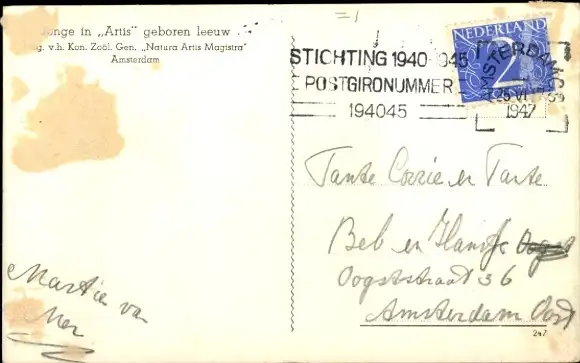 Jonge in „Artis" geboren leeuw
v.h. Kon. Zoöl. Gen. „Natura Artis Magistra"
Amsterdam
=1
STICHTING 1940-1945
POSTGIRONUMMER
194045
NEDERLAND
2
AMSTERDAM
25 VI
1947
Tante Corrie en Tante
Beb en Hansje
Oogststraat 36
Amsterdam Oost
Martie van
247